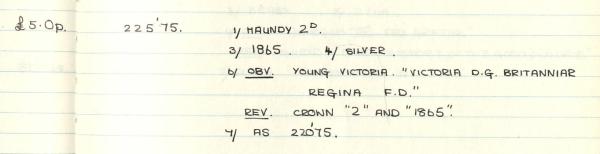 £5.0p. 225'75. 1/ MAUNDY 2D.
3/ 1865. 4/ SILVER.
6/ OBV. YOUNG VICTORIA. "VICTORIA D.G. BRITANNIAR
REGINA F.D."
REV. CROWN "2" AND "1865".
7/ AS 220'75.